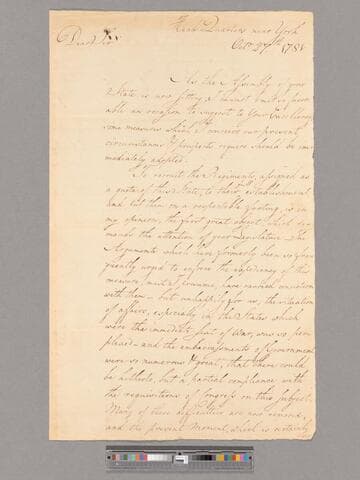 Head Quarters near York
Octr 27th 1781
Dear Sir
As the Assembly of your
State is now sitting, I cannot omit so favor-
able an occasion to suggest to Your Excellency,
some measures which I conceive our present
circumstances & prospects require should be im-
mediately adopted.
To recruit the Regiments, assigned as
a quota of this State, to their establishment,
and put them on a respectable footing, is in
my opinion, the first great object, which de-
mands the attention of your Legislature. The
Arguments which have formerly been so fre-
quently urged to enforce the expediency of this
measure, must, I presume, have carried conviction
with them — but unhappily for us, the situation
of affairs, especially in the States which
were the immediate seat of War, was so per-
plexed — and the embarrassments of Government
were so numerous & great, that there could
be hitherto, but a partial compliance with
the requisitions of Congress on this Subject.
Many of these difficulties are now removed,
and the present Moment, which is certainly